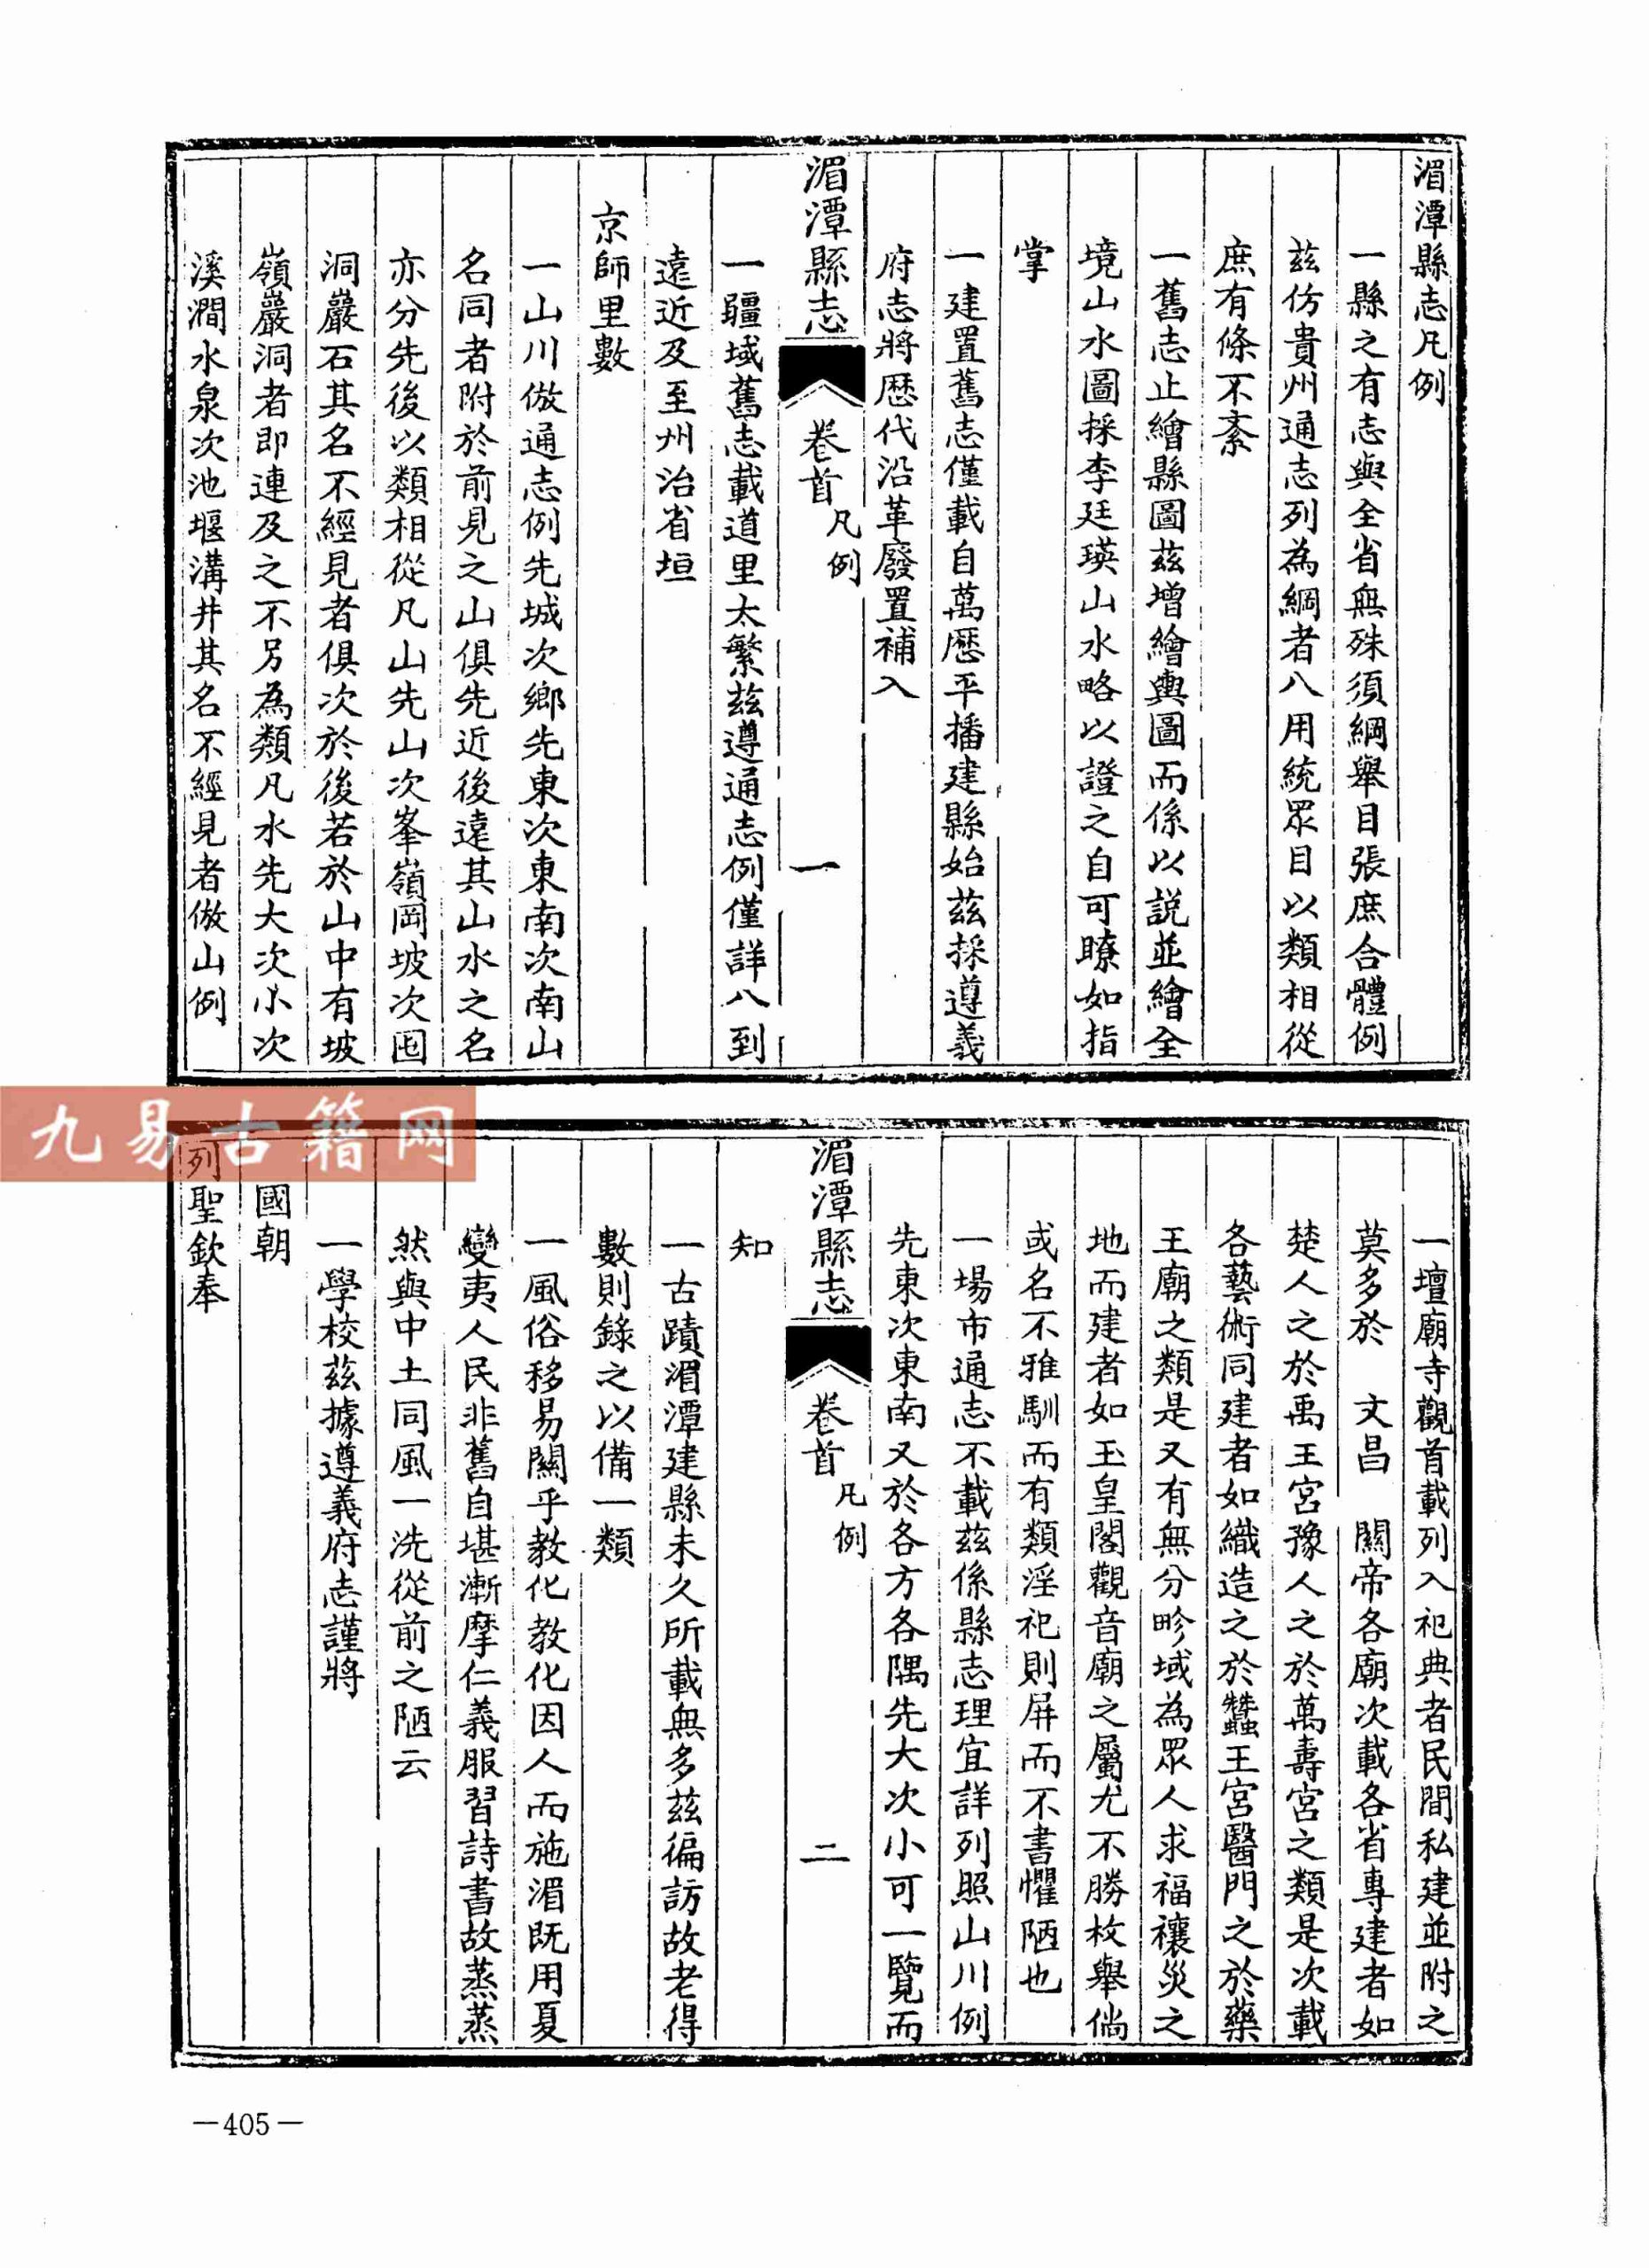 湄潭縣志凡例
一縣之有志與全省無殊須綱舉目張庶合體例
茲仿貴州通志列為綱者八用統眾目以類相從
庶有條不紊
一舊志止繪縣圖茲增繪輿圖而係以說並繪全
境山水圖採李廷瑛山水略以證之自可瞭如指
掌
一建置舊志僅載自萬歷平播建縣始茲採遵義
府志將歷代沿革廢置補入
湄潭縣志 卷首 凡例 一
一疆域舊志載道里太繁茲遵通志例僅詳八到
遠近及至州治省垣
京師里數
一山川倣通志例先城次鄉先東次東南次南山
名同者附於前見之山俱先近後遠其山水之名
亦分先後以類相從凡山先山次峯嶺岡坡次囤
洞巖石其名不經見者俱次於後若於山中有坡
嶺巖洞者即連及之不另為類凡水先大次小次
溪澗水泉次池堰溝井其名不經見者倣山例
一壇廟寺觀首載列入祀典者民間私建並附之
莫多於 文昌 關帝各廟次載各省專建者如
楚人之於禹王宮豫人之於萬壽宮之類是次載
各藝術同建者如織造之於蠶王宮醫門之於藥
王廟之類是又有無分畛域為眾人求福禳災之
地而建者如玉皇閣觀音廟之屬尤不勝枚舉倘
或名不雅馴而有類淫祀則屏而不書懼陋也
一場市通志不載茲係縣志理宜詳列照山川例
先東次東南又於各方各隅先大次小可一覽而
湄潭縣志 卷首 凡例 二
知
一古蹟湄潭建縣未久所載無多茲徧訪故老得
數則錄之以備一類
一風俗移易關乎教化教化因人而施湄既用夏
變夷人民非舊自堪漸摩仁義服習詩書故蒸蒸
然與中土同風一洗從前之陋云
一學校茲據遵義府志謹將
國朝
列聖欽奉
—405—
九易古籍网